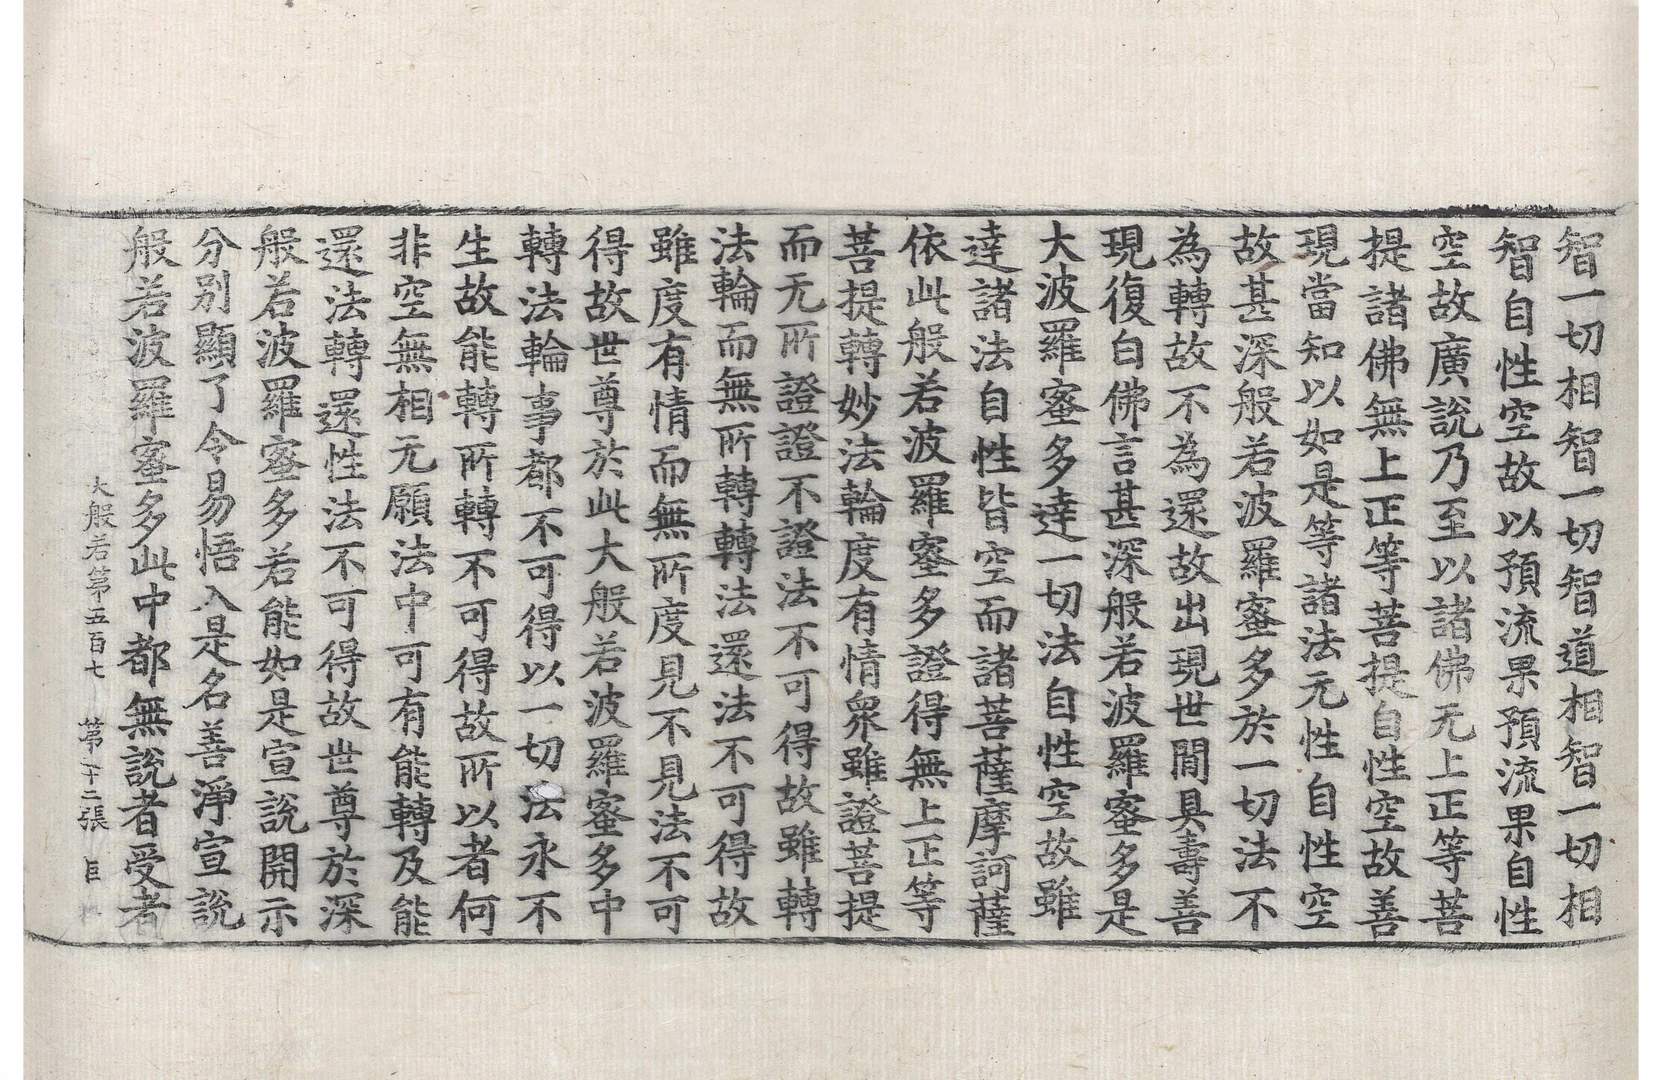 智一切相智智一切智智道相智一切相
智自性空故以預流果預流果自性
空故廣說乃至以諸佛无上正等菩
提諸佛無上正等菩提自性空故善
現當知以如是等諸法无性自性空
故甚深般若波羅蜜多於一切法不
為轉故不為還故出現世間具壽善
現復白佛言甚深般若波羅蜜多是
大波羅蜜多達一切法自性空故雖
達諸法自性皆空而諸菩薩摩訶薩
依此般若波羅蜜多證得無上正等
菩提轉妙法輪度有情衆雖證菩提
而无所證證不證法不可得故雖轉
法輪而無所轉轉法還法不可得故
雖度有情而無所度見不見法不可
得故世尊於此大般若波羅蜜多中
轉法輪事都不可得以一切法永不
生故能轉所轉不可得故所以者何
非空無相无願法中可有能轉及能
還法轉還性法不可得故世尊於深
般若波羅蜜多若能如是宣說開示
分別顯了令易悟入是名善淨宣說
般若波羅蜜多此中都無說者受者
大般若第五百七 第十二張 巨